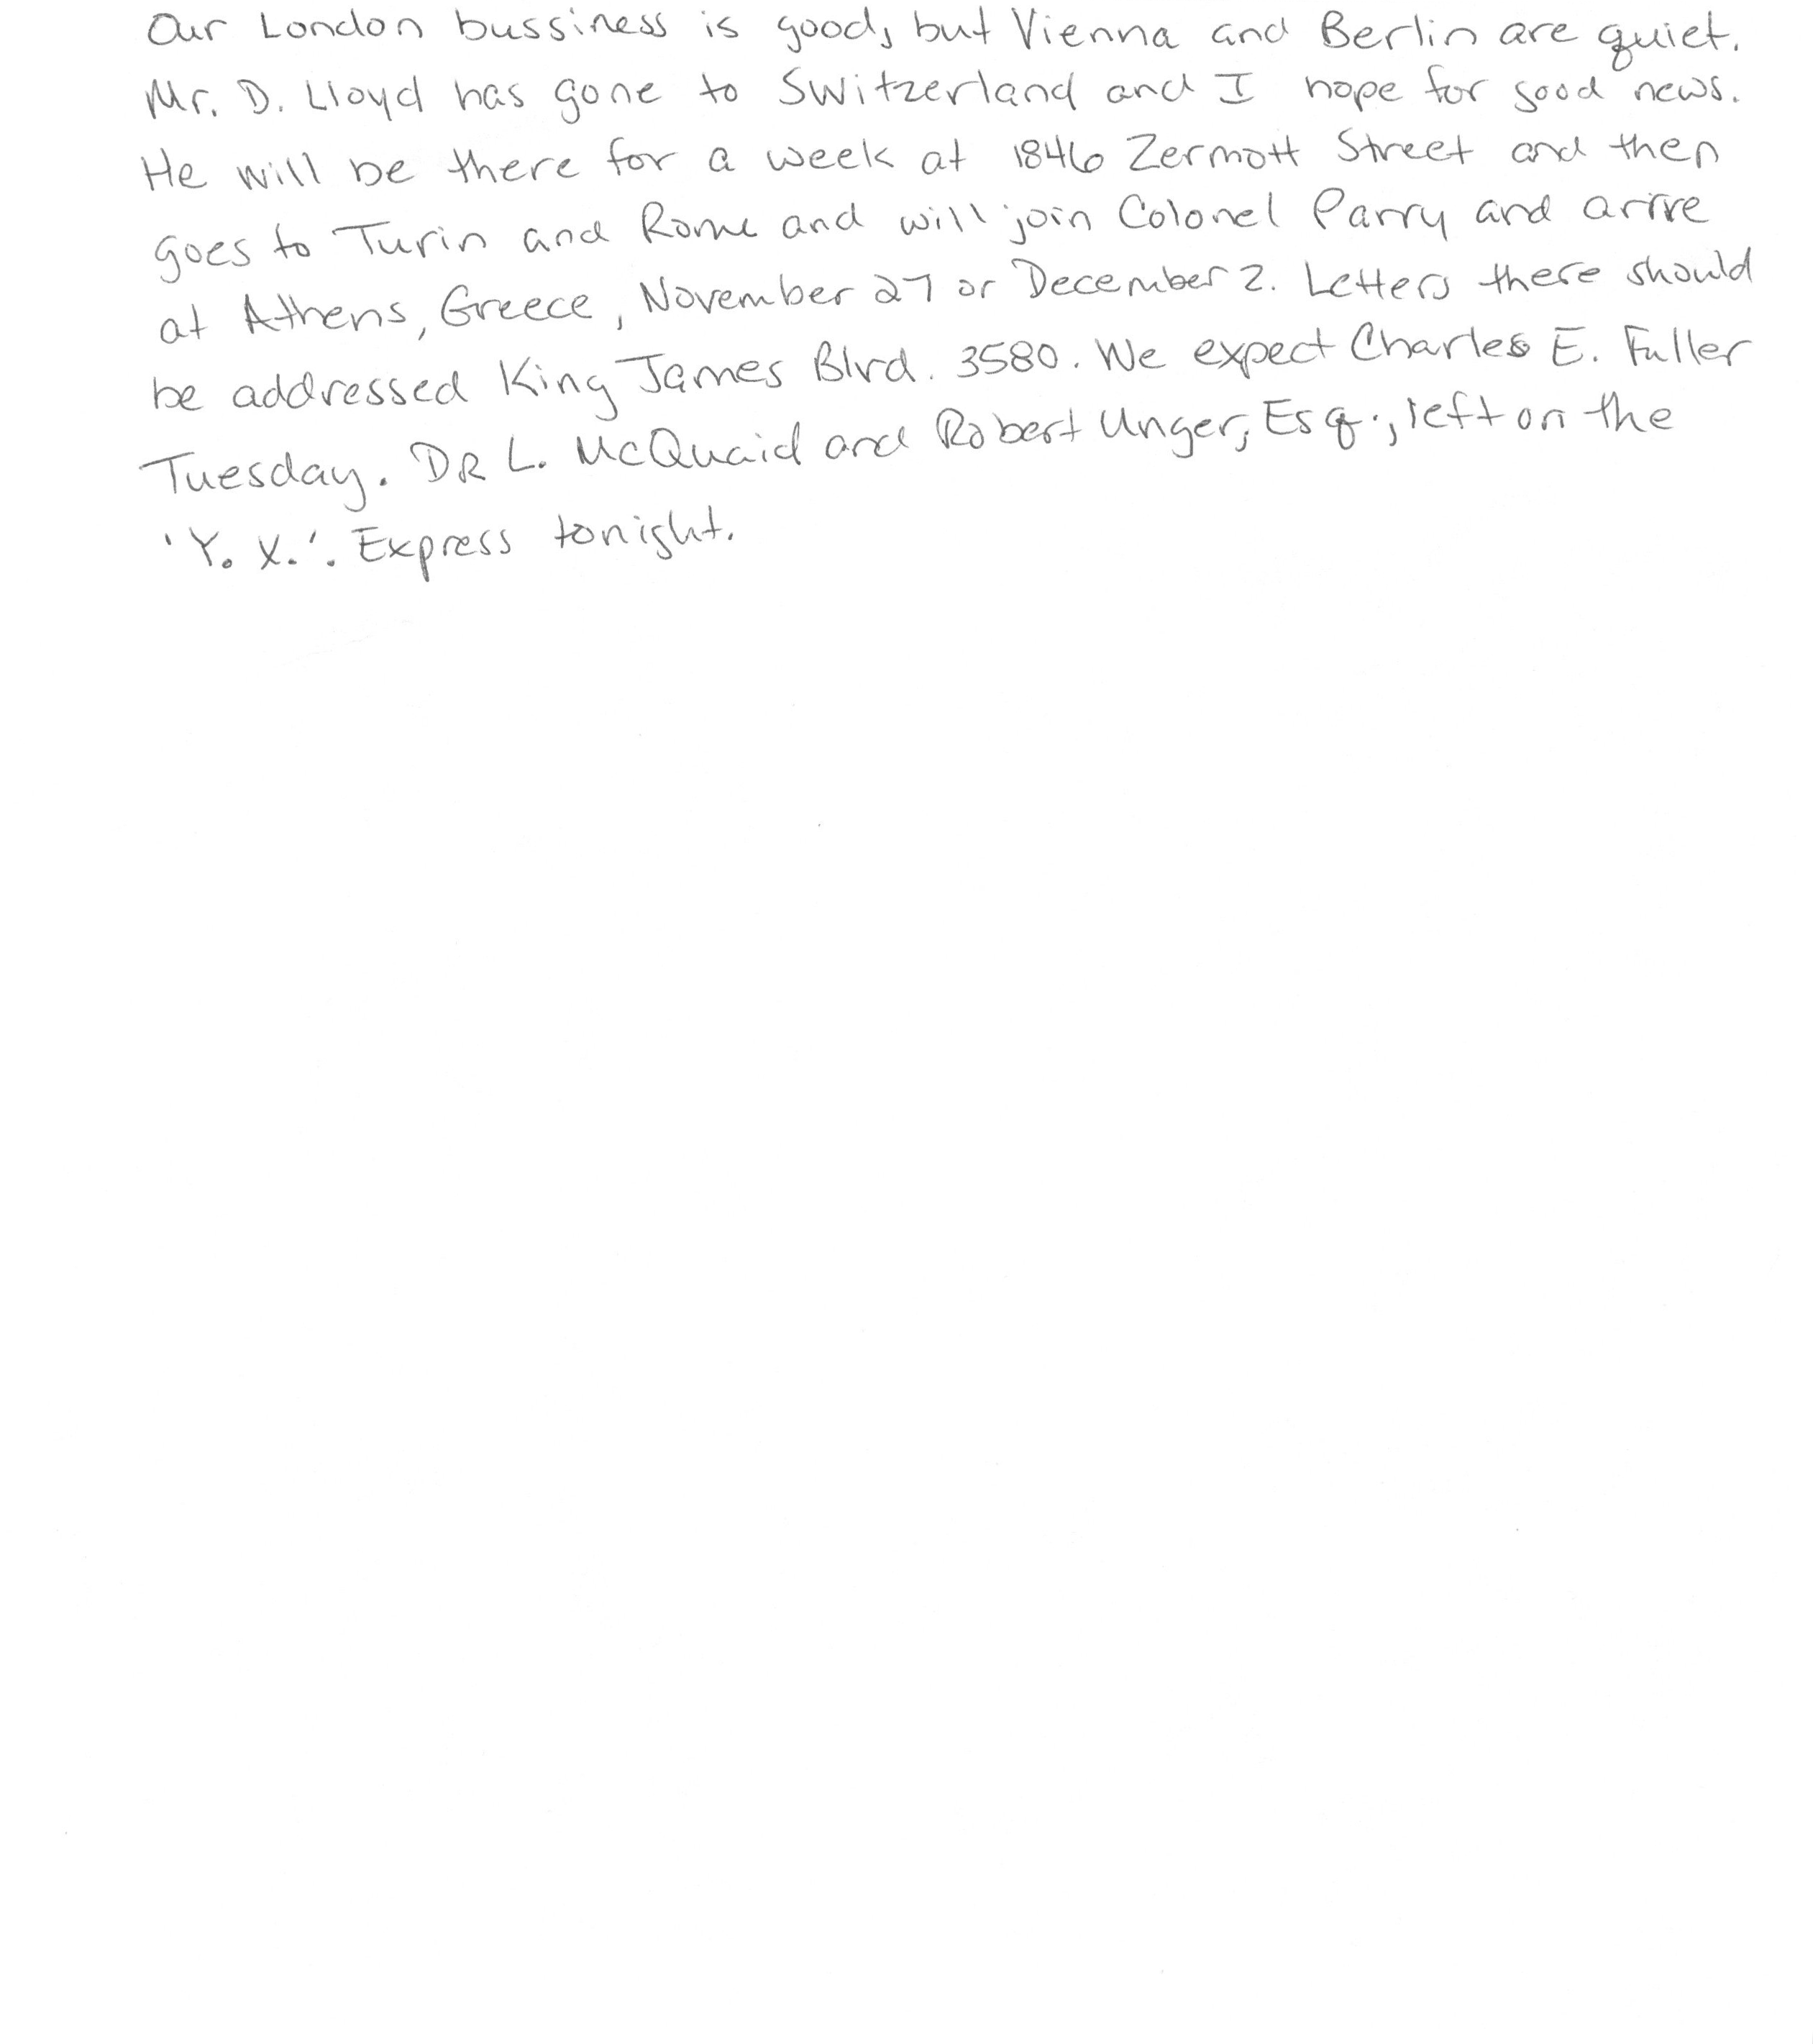 Our London bussiness is good, but Vienna and Berlin are quiet.
Mr. D. Lloyd has gone to Switzerland and I hope for good news.
He will be there for a week at 1846 Zermott Street and then
goes to Turin and Rome and will join Colonel Parry and arrive
at Athens, Greece, November 27 or December 2. Letters there should
be addressed King James Blvd. 3580. We expect Charles E. Fuller
Tuesday. DR L. McQuaid and Robert Unger, Esq., left on the
'Y. X.'. Express tonight.